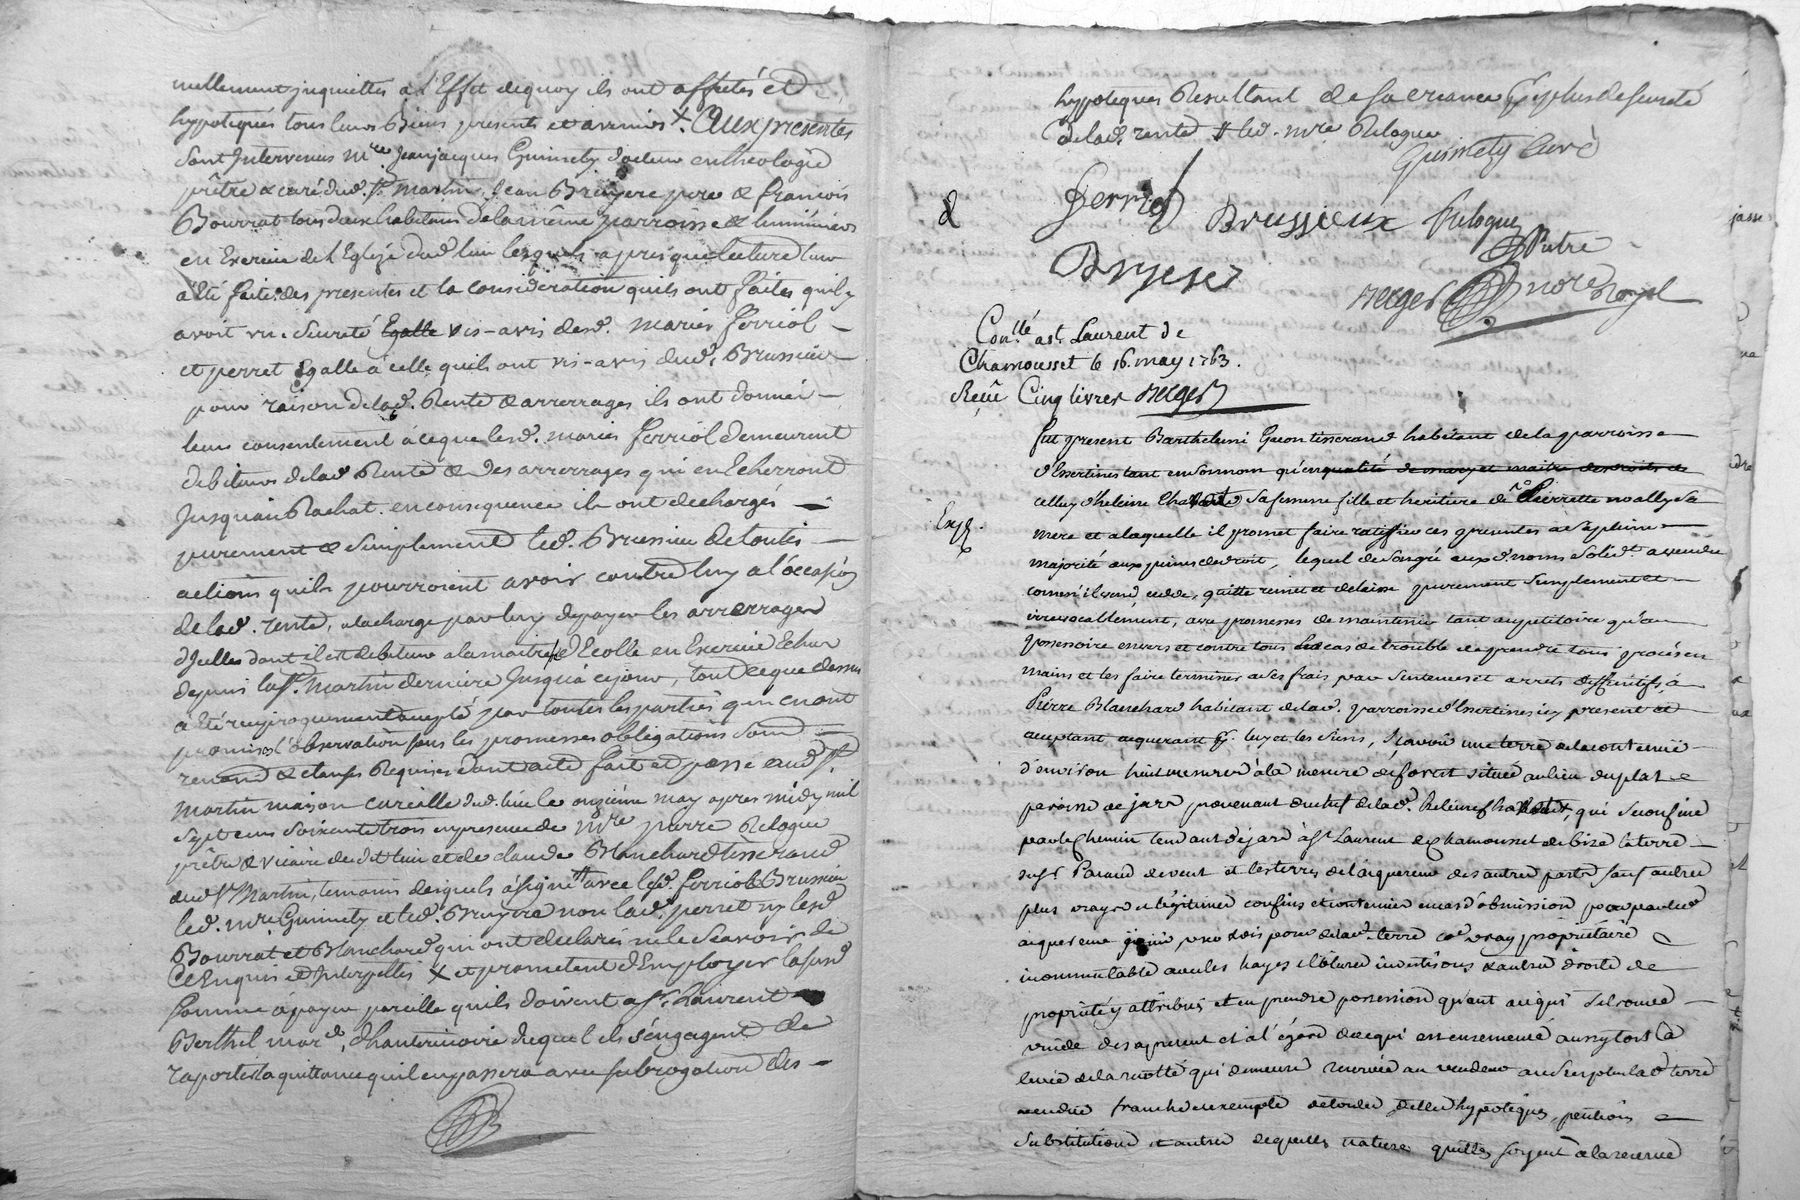 nuellement inquiettés a l'Effet dequoy ils ont affectés et
hypotequés tous leurs Biens presents et avenirs X. Aux presentes
sont Intervenus mre. Jeanjacques Guinnety docteur en theologie
prêtre & curé dud. St. Martin, Jean Bruyere pere & francois
Bourrat tous deux habitans de la meme parroisse & luminiers
en Exercice de l'Eglize dud. lieu lesquels apres que lecture leur
a été faite des presentes et la consideration quils ont faites quil y
avoit vu. Sureté Egalle vis-avis desd. mariés ferriol
et perret Egalle a celle quils ont vis-avis dud. Brussieu
pour raison de lad. Rente & arrerrages ils ont donné
leur consentement a ce que lesd. mariés ferriol demeurent
debiteurs de lad Rente & des arrerrages qui en Echerront
Jusqu'au Rachat. en consequence ils ont dechargés
purement & simplement led. Brussieu de toutes
actions quils pourroient avoir contre luy a l'occasion
de lad. rente, a la charge par luy de payer les arrerrages
d'Jcelles dont il est debiteur a la maitresse d'Ecolle en Exercice Echus
depuis la St. Martin derniere Jusqu'a ce jour, tout ce que dessus
a été reciproquement accepté par toutes les parties qui en ont
promis l'observation sous les promesses obligations soum
renonc & clauses Requises dont acte fait et passé aud St.
Martin maison curialle dud. lieu le onzieme may apres midy mil
sept cens soixante trois en presence de mre pierre Relogue
prêtre & vicaire dud lieu et de claude Blanchard tisserand
dud St Martin, temoins desquels a signé avec led. ferriol Brussieu
led. mre. Guinnety et led. Bruyere non lad. perret ny lesd
Bourrat et Blanchard qui ont declarés ne le sçavoir de
ce Enquis et Interpellés X et promettent d'Employer lad
somme a payer pareille quils doivent a sr. Laurent
Berthel mard. Chantrinoirie duquel ils s'engagent de
raporter la quittance quil en passera avec subrogation des
hypoteques Resultant de sa creance pr plus de sureté
de lad. rente # led. mre Relogue
Guinnety curé
Ferriol
Brussieux Relogue
Ptre
Bruyere
Reger nore Royal
Conllé a st Laurent de
Chamousset le 16. may 1763.
Reçu Cinq livres Reger
fut present Barthelemi Gacon tisserand habitant de la parroisse
d'Essertines tant en son nom qu'en qualité de mary et maitre des droits de
celluy d'heleine Chavand sa femme fille et heritiere de Pierrette noally sa
Exp.
mere et a laquelle il promet faire ratiffier ces presentes a sa pleine
majorité aux peines de droit, lequel de son gré auxd. noms solidt. a vendu
comm'il vend, cedde, quitte remet et delaisse purement simplement et
irrevocablement, avec promesses de maintenir tant au petitoire qu'au
possessoire envers et contre tous en cas de trouble de prendre tous procés en
mains et les faire terminer a ses frais par sentences et arrets deffinitifs, a
Pierre Blanchard habitant de lad. parroisse d'Essertines icy present et
acceptant acquerant pr. luy et les siens, Scavoir une terre de la contenue
d'environ huit mesures a la mesure de forest située au lieu du plat
paroisse de jare provenant du chef de lad. heleine Chavand, qui se confine
par le chemin tendant de jare a st Laurent de Chamousset de bize la terre
du sr Paraud de vent et les terres de l'acquereur des autres parts sauf autres
plus vrays et legitimes confins et contenues en cas d'obmission pour par led
acquereur jouir user disposer de lad. terre coe. vray proprietaire
incommutable avec les hayes clotures investisons & autres droits de
proprieté y attribués et en prendre possession quant a ce qui se trouve
vuide des a present et a l'egard de ce qui est ensemencé aussytost la
levée de la recolte qui demeure reservée au vendeur au surplus lad terre
vendue franche et exempte de toutes dettes hypoteques, pentions
substitutions et autres de quelles natures quelles soyent a la reserve